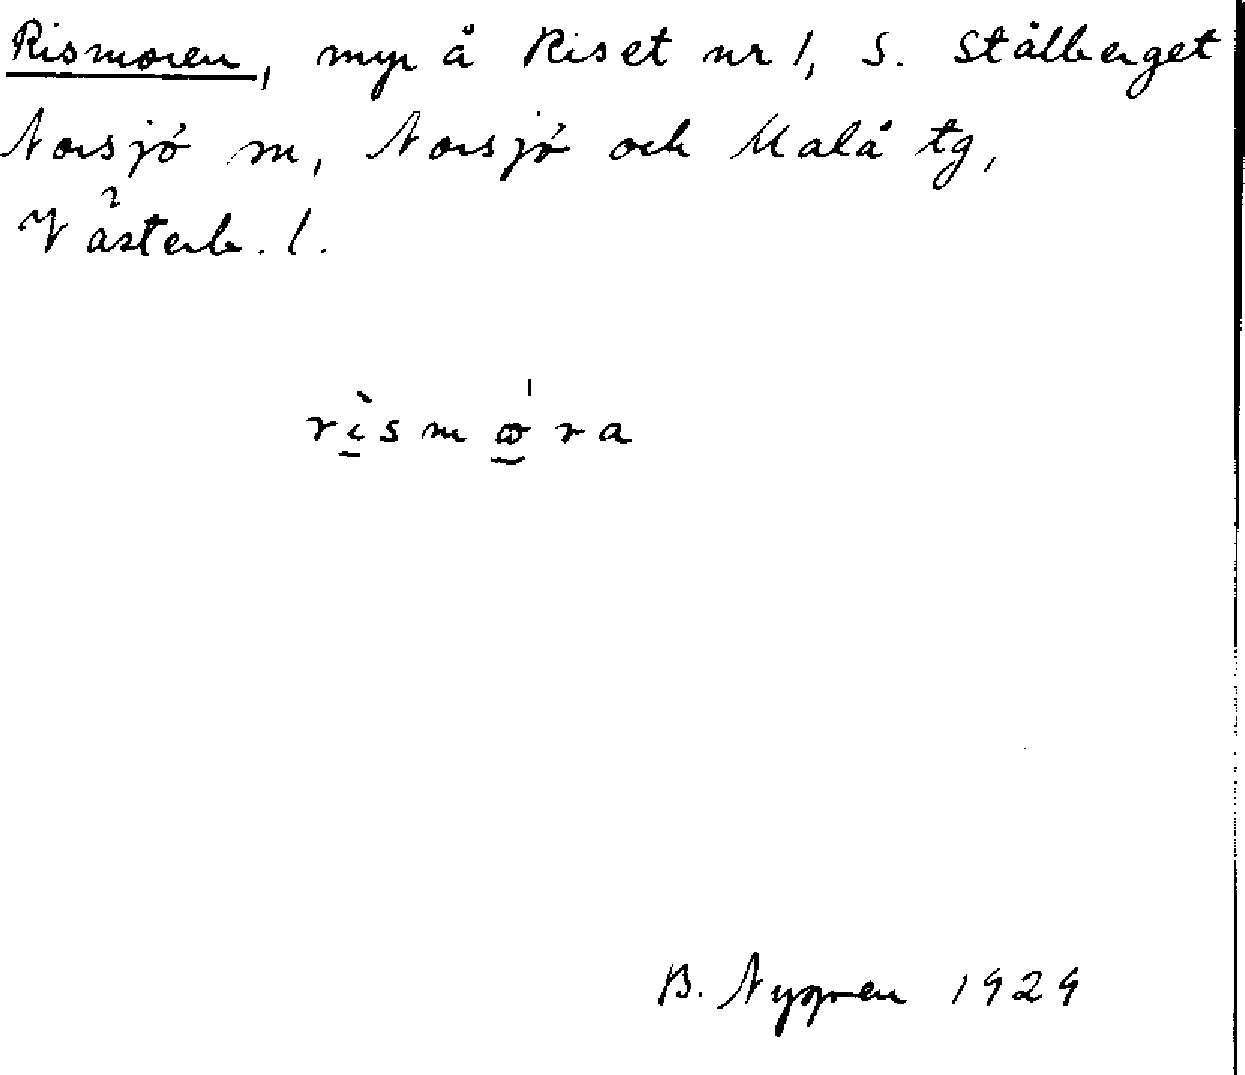 Rismoren, myr å Riset nr 1, S. Stålberget
Norsjö m, Norsjö och Malå tg,
Västerb. l.
rìsmøra
B. Nygren 1929